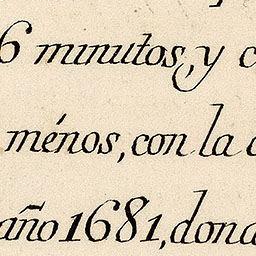 6 minutos, y c
ménos, con la
año 1681, dond